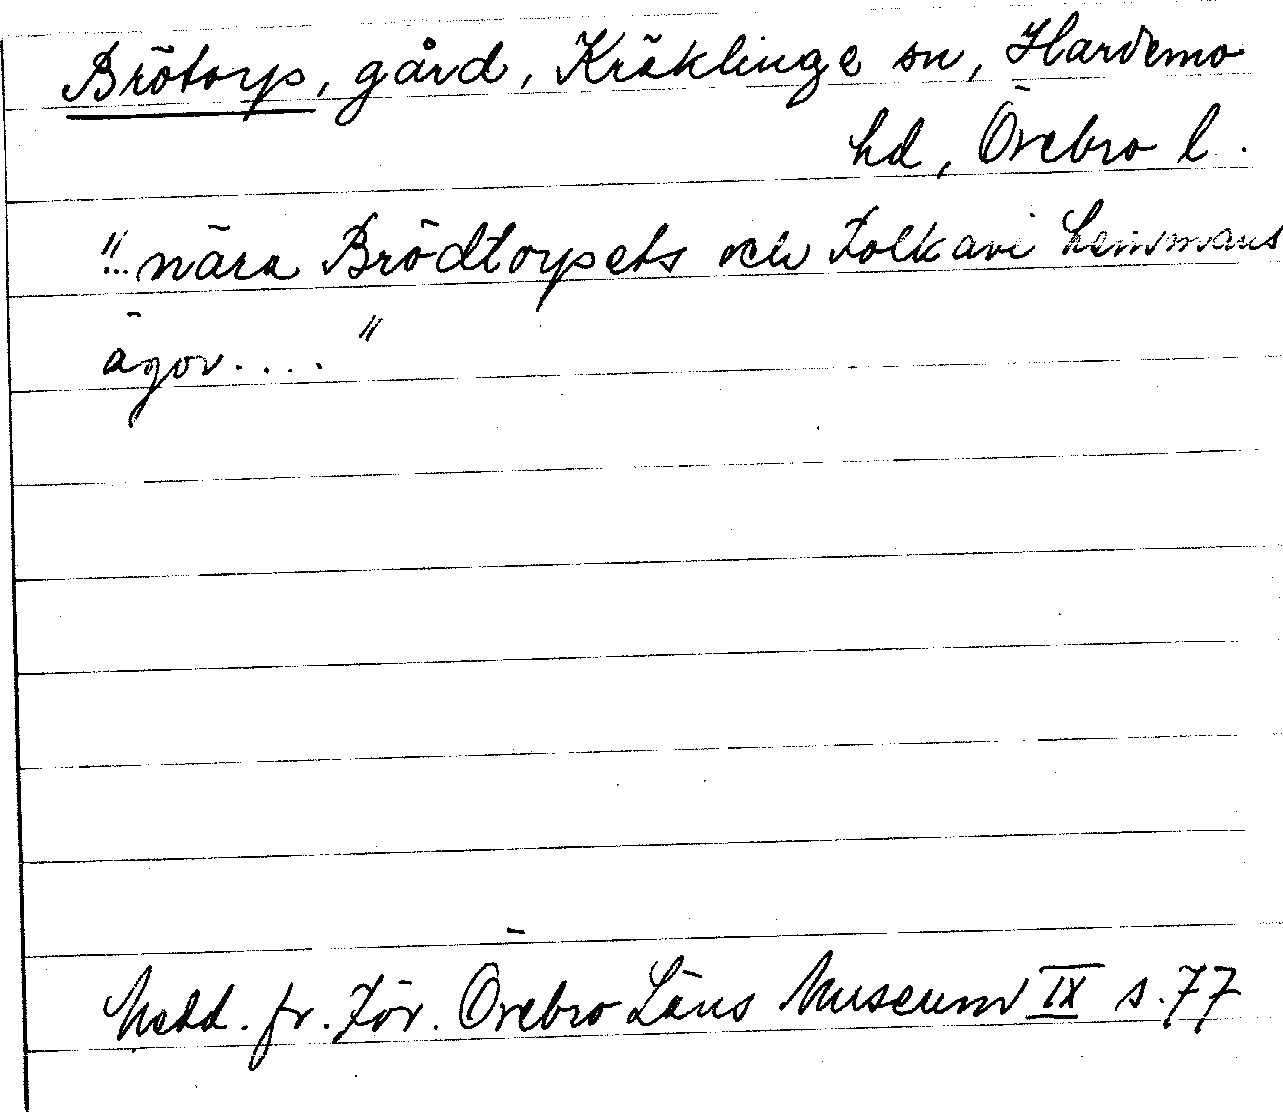 Brötorp, gård, Kräklinge sn, Hardemo
hd, Örebro l.
"... nära Brödtorpets och Folkavi Lensmans
ägor...."
Medd. fr. För. Örebro Läns Museum IX s. 77